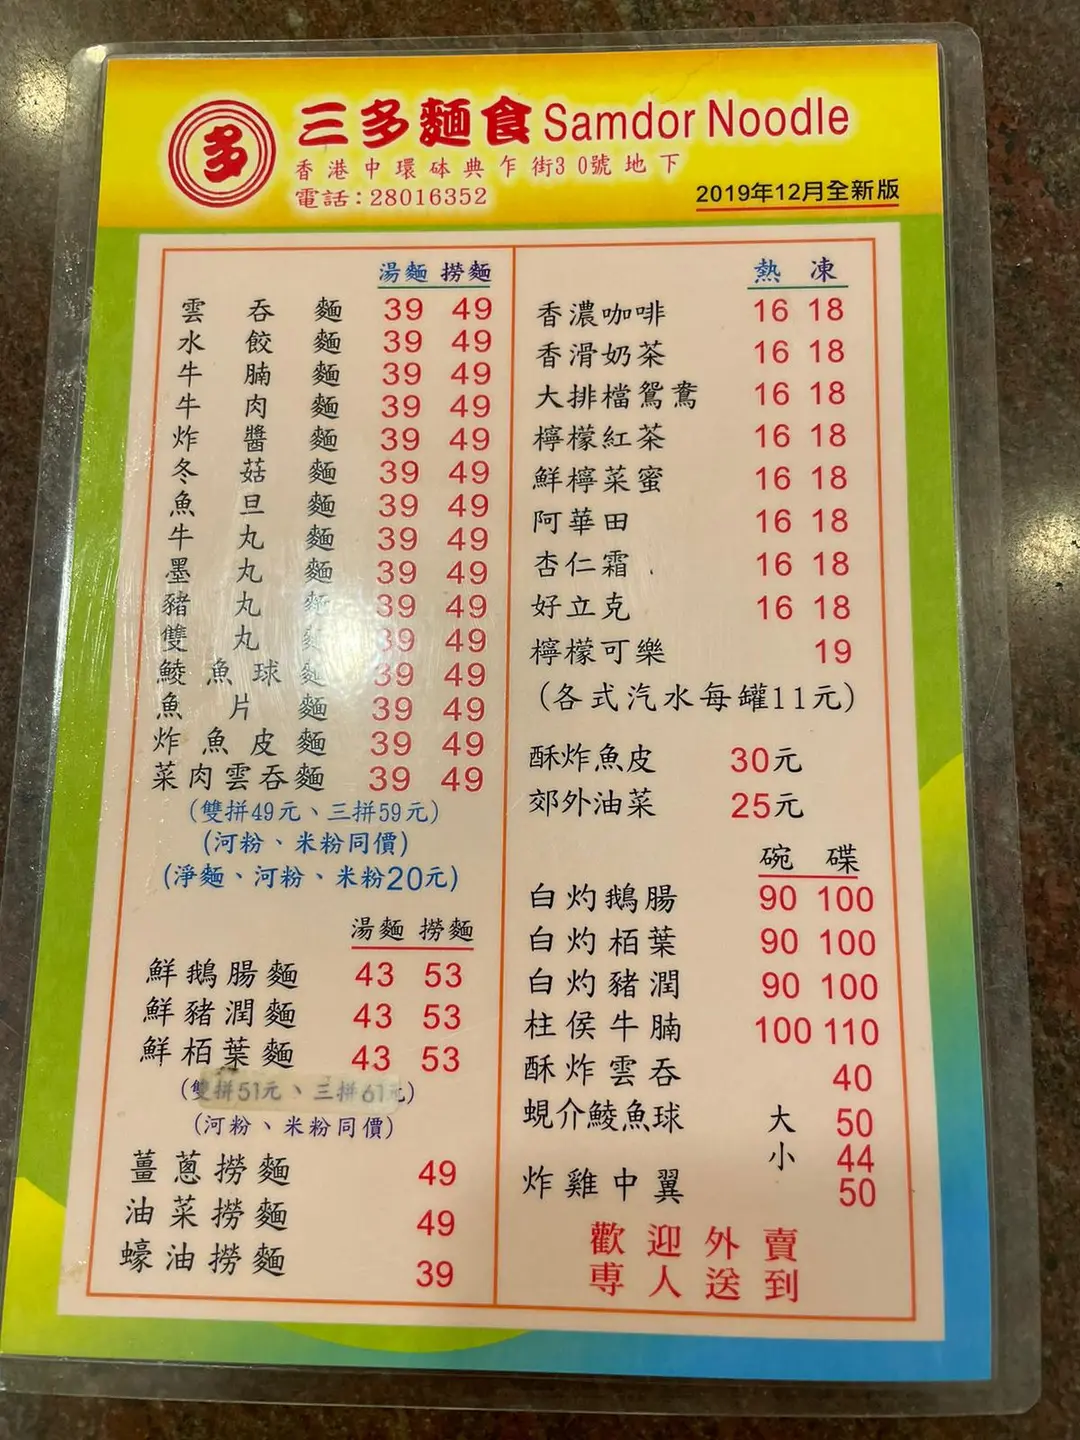 多 三多麵食 Samdor Noodle
香港中環砵典乍街30號地下
電話:28016352
2019年12月全新版
湯麵 撈麵
雲吞麵 39 49
水餃麵 39 49
牛腩麵 39 49
牛肉麵 39 49
炸醬麵 39 49
冬菇麵 39 49
魚旦麵 39 49
牛丸麵 39 49
墨丸麵 39 49
豬丸麵 39 49
雙丸麵 39 49
鯪魚球麵 39 49
魚片麵 39 49
炸魚皮麵 39 49
菜肉雲吞麵 39 49
(雙拼49元、三拼59元)
(河粉、米粉同價)
(淨麵、河粉、米粉20元)
湯麵 撈麵
鮮鵝腸麵 43 53
鮮豬潤麵 43 53
鮮栢葉麵 43 53
(雙拼51元、三拼61元)
(河粉、米粉同價)
薑蔥撈麵 49
油菜撈麵 49
蠔油撈麵 39
熱 凍
香濃咖啡 16 18
香滑奶茶 16 18
大排檔鴛鴦 16 18
檸檬紅茶 16 18
鮮檸菜蜜 16 18
阿華田 16 18
杏仁霜 16 18
好立克 16 18
檸檬可樂 19
(各式汽水每罐11元)
酥炸魚皮 30元
郊外油菜 25元
碗 碟
白灼鵝腸 90 100
白灼栢葉 90 100
白灼豬潤 90 100
柱侯牛腩 100 110
酥炸雲吞 40
蜆介鯪魚球 大 50
小 44
炸雞中翼 50
歡迎外賣
專人送到